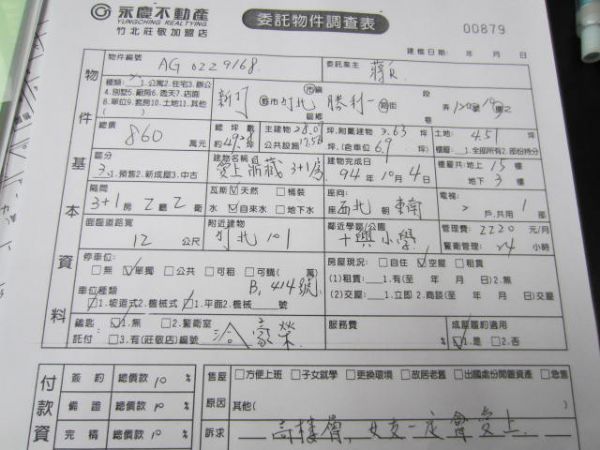 永慶不動產 委託物件調查表
YUNGCHING REALTYING
竹北莊敬加盟店 00879
建檔日期: 年 月 日
物件基本資料
物件編號 AG 0229168. 委託業主 蔣R
種類: 1.公寓 2.住宅 3.辦公
4.別墅 5.廠房 6.透天 7.店面
8.單位 9.套房 10.土地 11.其他
( )
新竹 縣市 竹北 勝利一 路街 段 巷 弄 號 之
總價 860 萬元
總坪數 約49.28 坪
主建物 28.07
公共設施 17.58
坪,附屬建物 3.63 坪
坪,(含車位 6.9 坪)
土地: 4.51 坪
權屬: 1.全部所有 2.部份持分
區分 3 1.預售 2.新成屋 3.中古
建物名稱 愛上鼎藏 3+1房
建物完成日 94年10月4日
樓層共:地上 15 樓
地下 3 樓
隔間
3+1房 2廳 2衛
瓦斯 ☑天然 □桶裝
水 ☑自來水 □地下水
座向:
座西北 朝東南
電梯:
戶,共用 1 部
面臨道路寬
12 公尺
附近建物
竹北101
鄰近學區/公園
十興小學
管理費: 2220 元/月
警衛管理: 24 小時
停車位:
□無 ☑單獨 □公共 □可租 □可購( 萬)
車位種類 B1 414號
☑1.坡道式 2.機械式 □1.平面 2.機械 號
房屋現況: □自住 ☑空屋 □租賃
(1)租賃: 1.有(至 年 月 日) 2.無
(2)交屋: 1.立即 2.商談(至 年 月 日)交屋
鑰匙 ☑1.無 □2.警衛室
託付 □3.有(莊敬店)編號 洽家榮
服務費
成屋履約適用
☑1.是 □2.否
付款資
簽約 總價款 10 %
備證 總價款 10 %
完稅 總價款 10 %
售屋原因 □方便上班 □子女就學 □更換環境 □故居老舊 □出國或份閒置資產 □急售
其他( )
訴求 高樓層,女友一定會愛上.